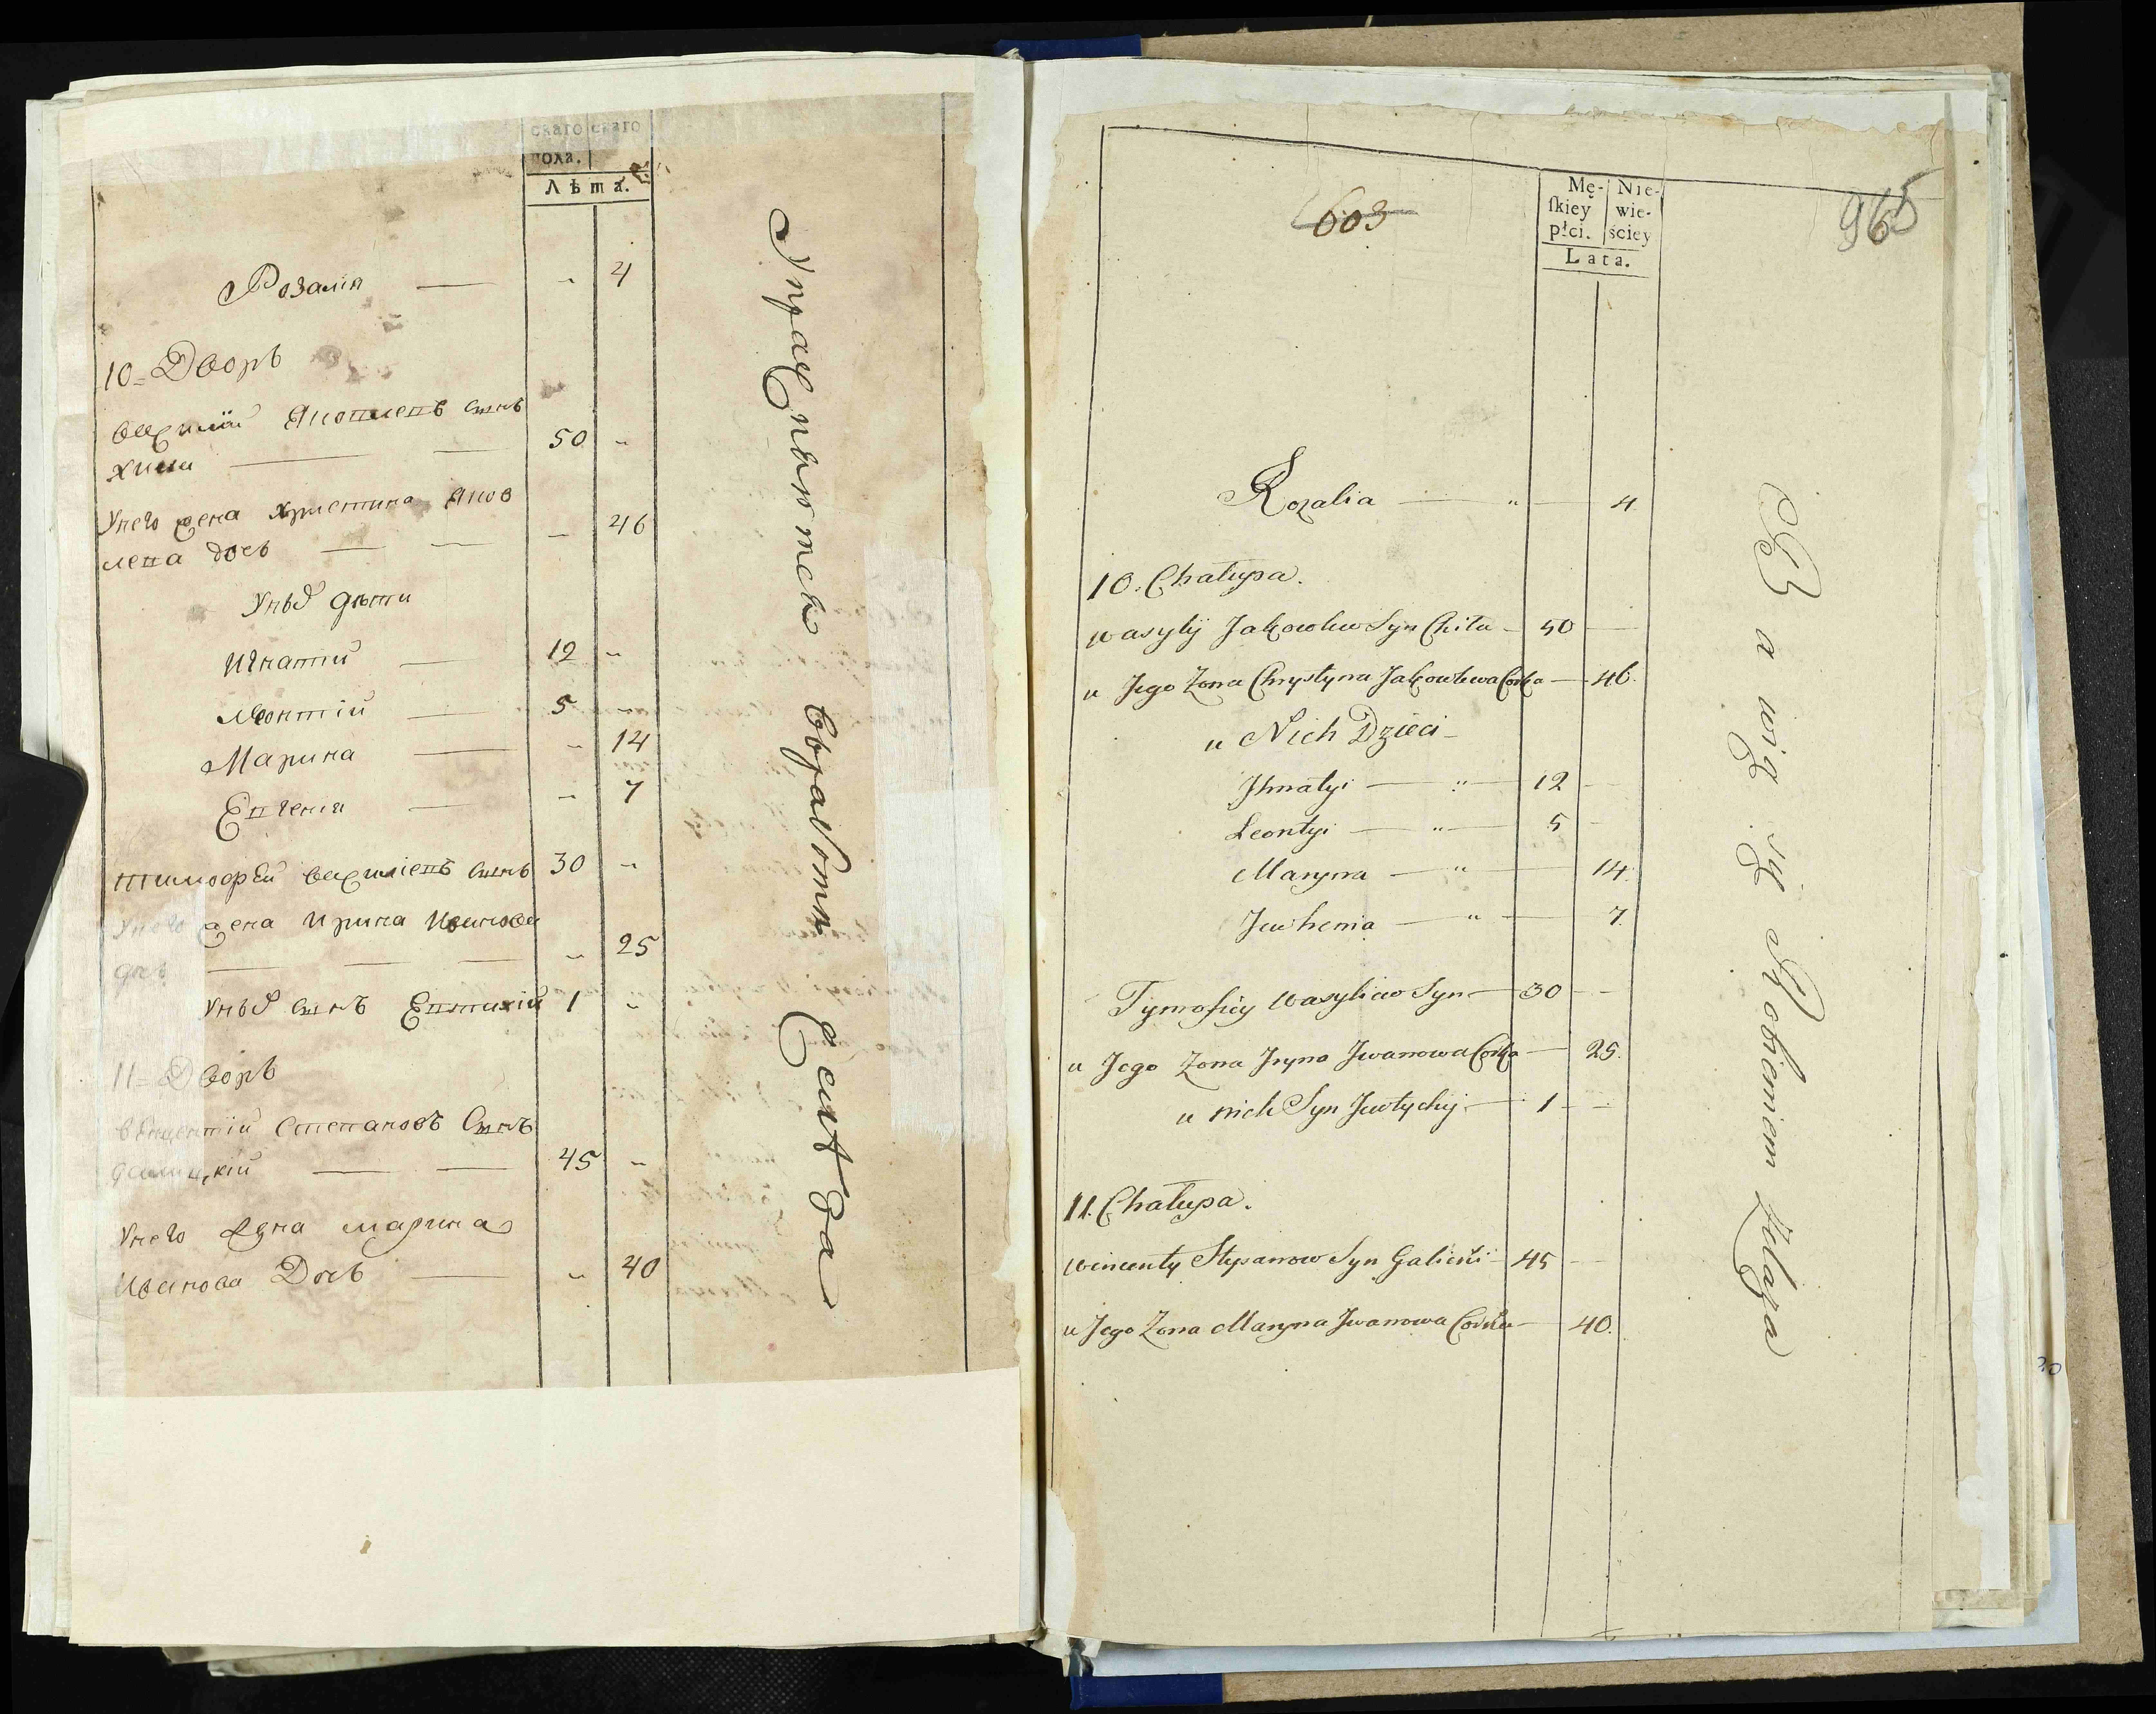 скаго скаго
пола.
Лѣта.
Розалія — " 4
10= Дворъ
Василій Яковлевъ сынъ
Хила — — 50 "
Унего жена Христина Яков
лева дочь — — " 46
Унихъ дѣти
Игнатій — 12 "
Леонтій — 5 "
Марина — " 14
Евгенія — " 7
Тимофей Василіевъ сынъ 30 "
Унего жена Ирина Иванова
дочь — — — " 25
Унихъ сынъ Евтихій 1 "
11= Дворъ
Викентій Степановъ Сынъ
Галицкій — — 45 "
Унего жена Марина
Иванова Дочь — " 40
Упражняются въ работи Желѣза
603
965
Mę-
skiey
płci.
Nie-
wie-
ściey
Lata.
Rozalia — " — 4.
10. Chałupa.
Wasylij Jakowlew Syn Chiła — 50 —
u Jego Zona Chrystyna Jakowlewa Corka — 46.
u Nich Dzieci —
Jhnatyi — " — 12 —
Leontyi — " — 5 —
Maryna — " — 14.
Jewhenia — " — 7.
Tymofiey Wasyliew Syn — 30 —
u Jego Zona Jryna Jwanowa Corka — 25.
u nich Syn Jewtychij — 1 —
11. Chałupa.
Wincenty Stepanow Syn Galicki — 45 —
u Jego Zona Maryna Jwanowa Corka — 40.
Bawią się Robieniem Żelaza